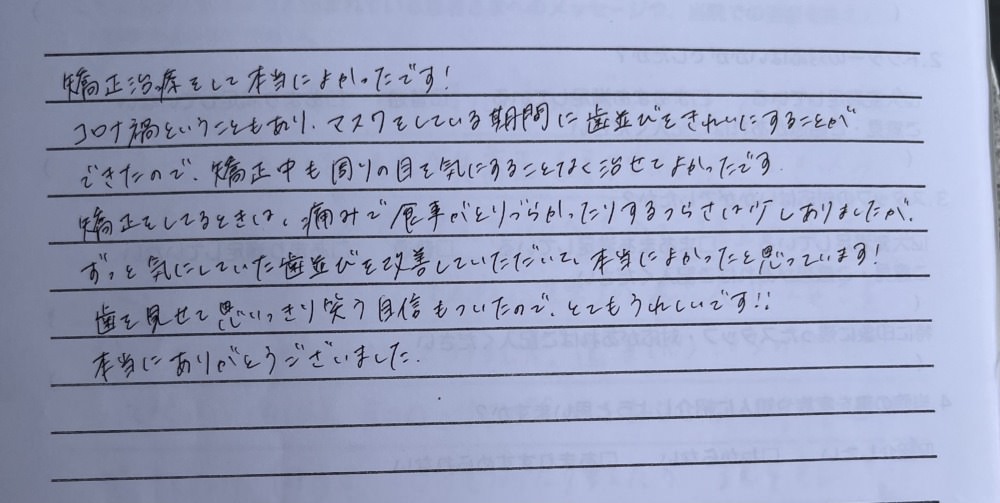 矯正治療をして本当によかったです!
コロナ禍ということもあり、マスクをしている期間に歯並びをきれいにすることが
できたので、矯正中も周りの目を気にすることなく治せてよかったです.
矯正をしてるときは、痛みで食事がとりづらかったりするつらさは少しありましたが、
ずっと気にしていた歯並びを改善していただいて、本当によかったと思っています!
歯を見せて思いっきり笑う自信もついたので、とてもうれしいです!!
本当にありがとうございました.